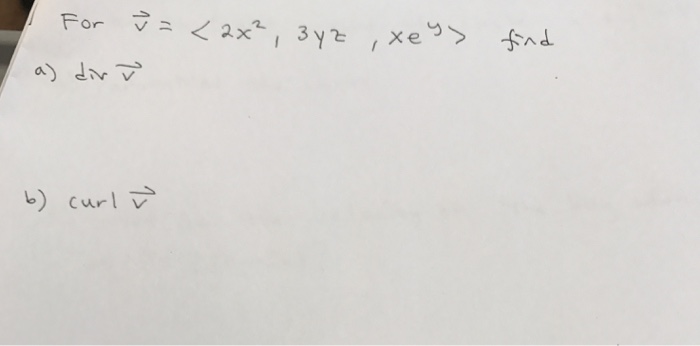 For v⃗ = < 2x², 3yz, xe^y > find
a) div v⃗
b) curl v⃗